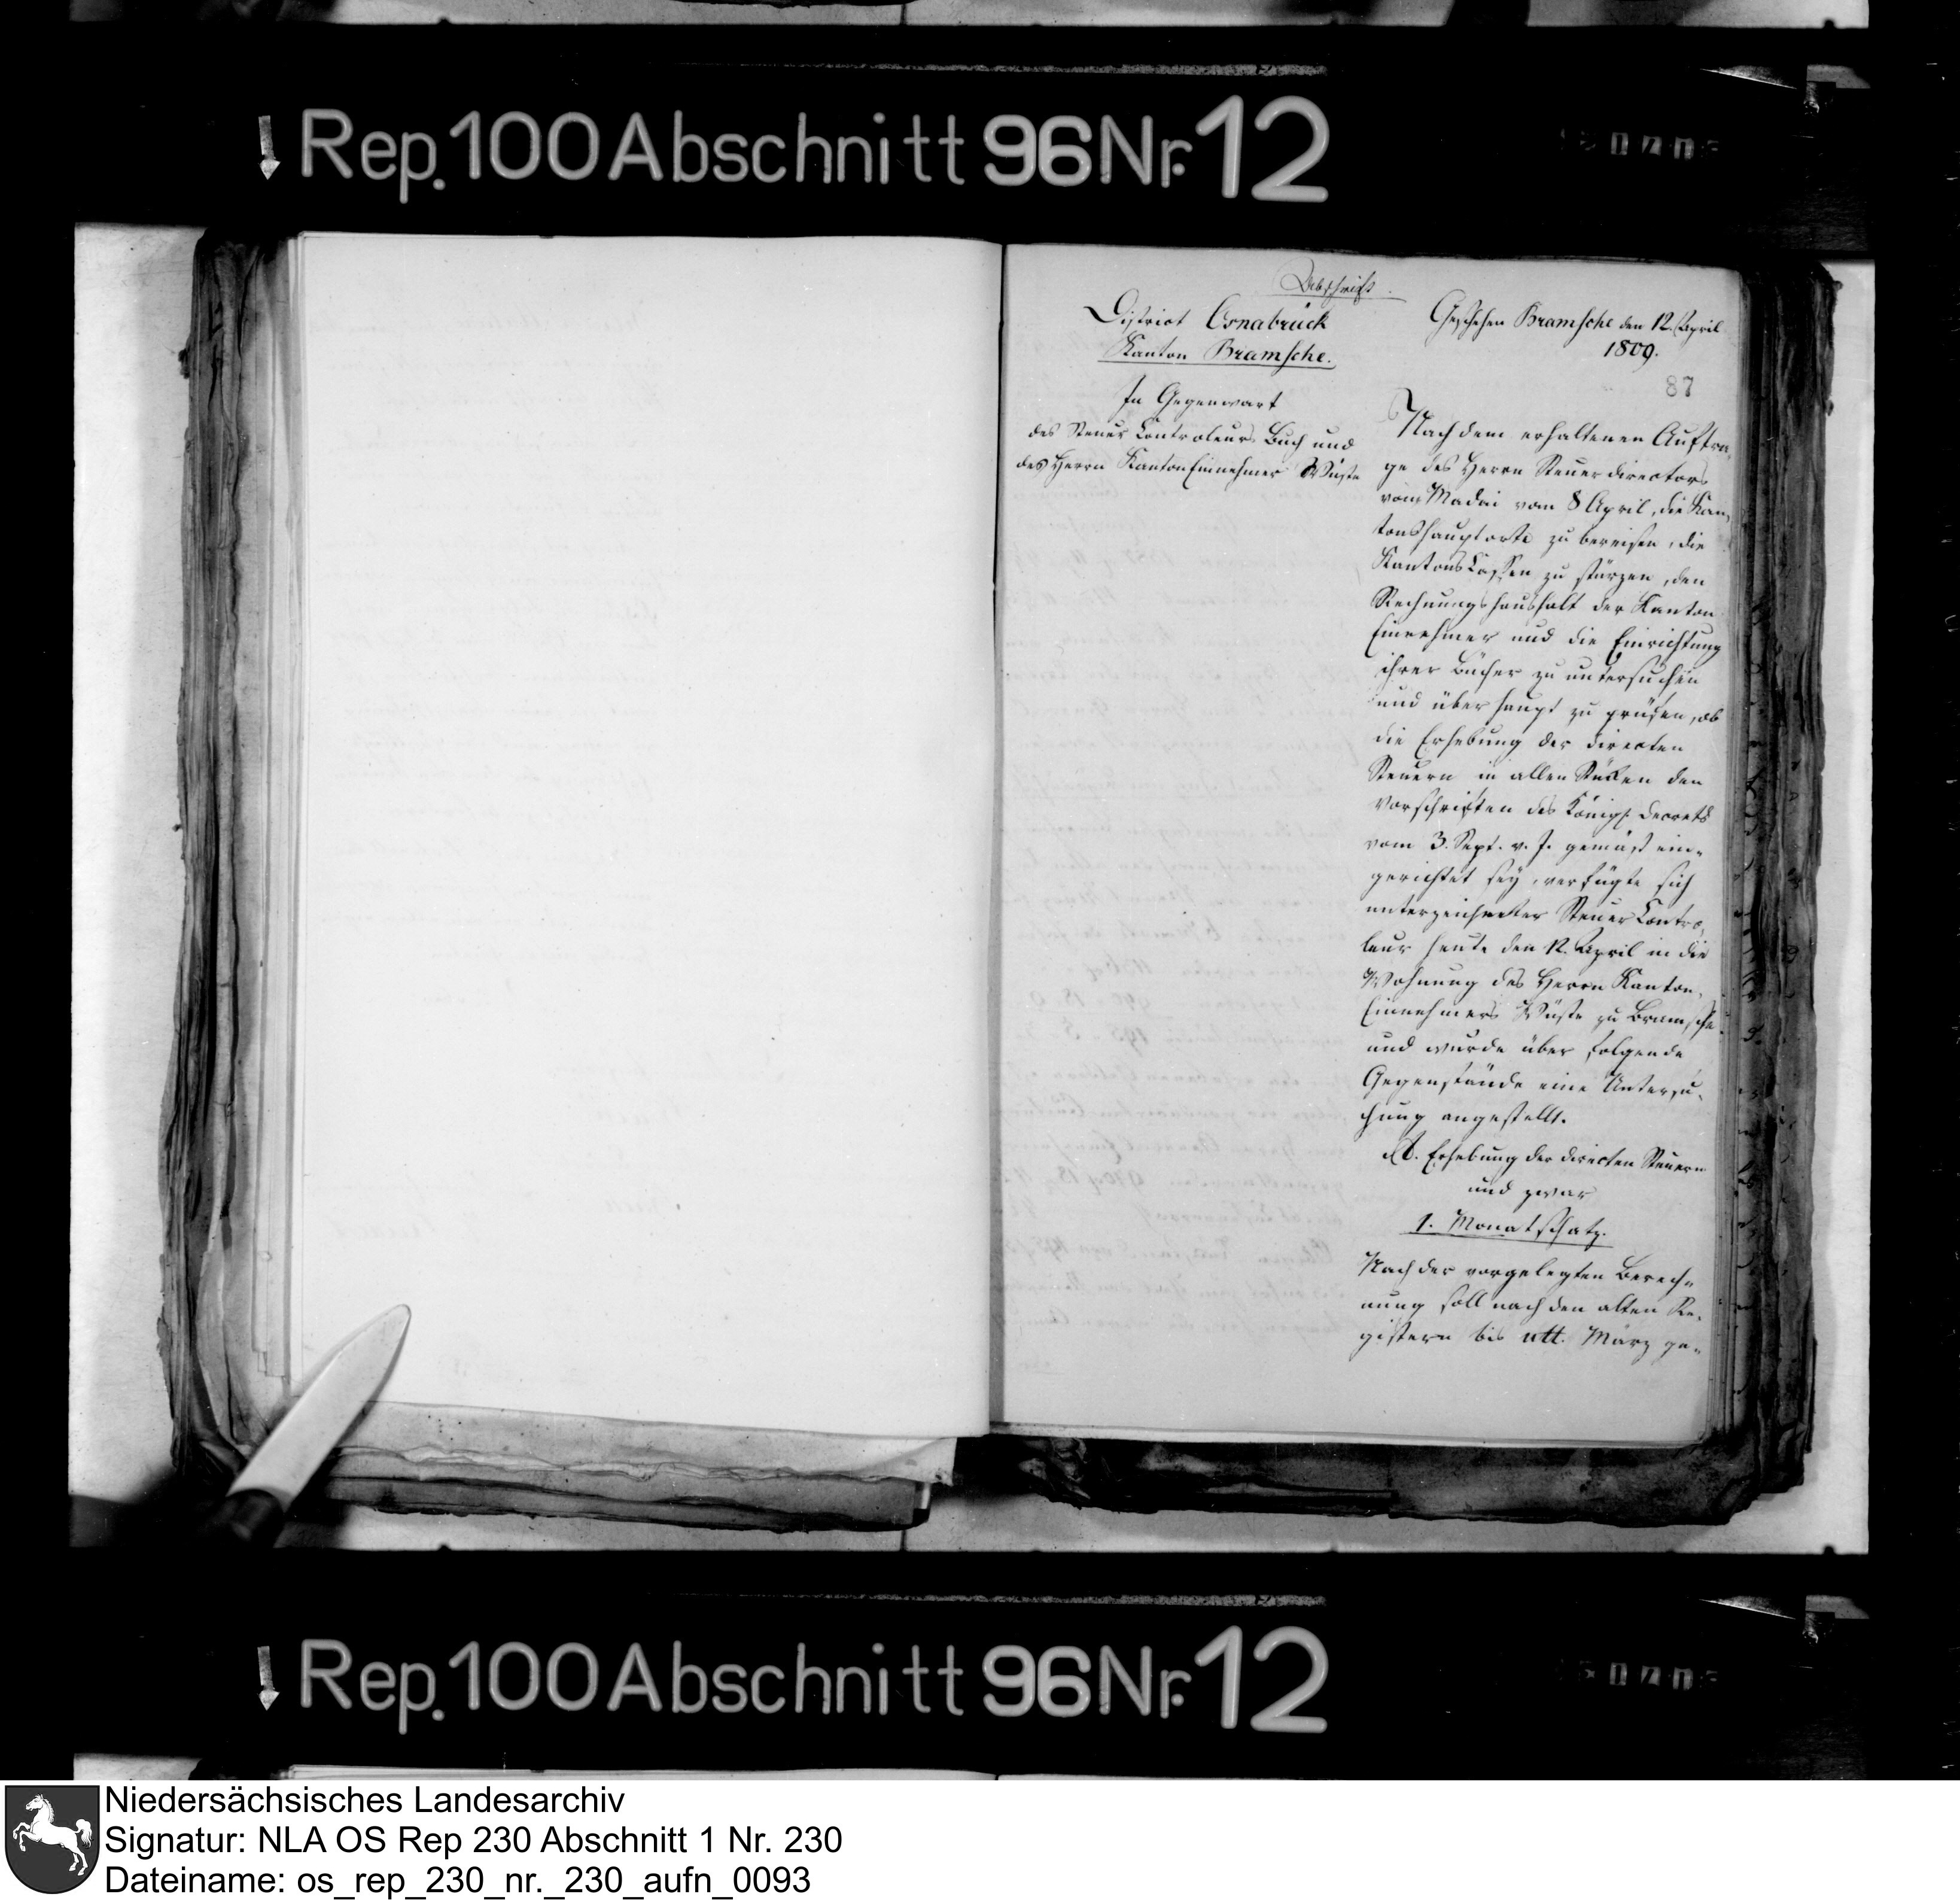 Rep. 100 Abschnitt 96 Nr. 12
Abschrift.
District Osnabrück
Kanton Bramsche.
Geschehen Bramsche den 12. April
1809.
87
In Gegenwart
des Steuer Controleurs Buch und
des Herrn Kanton Einnehmer Wüste
Nach dem erhaltenen Auftra-
ge des Herrn Steuerdirectors
von Madai vom 8 April, die Kan-
tonshauptorte zu bereisen, die
Kantons Cassen zu stürzen, den
Rechnungshaushalt der Kanton
Einnehmer und die Einrichtung
ihrer Bücher zu untersuchen
und überhaupt zu prüfen, ob
die Erhebung der directen
Steuern in allen Stücken den
Vorschriften des Königl. Decrets
vom 3. Sept. v. J. gemäß ein-
gerichtet sey, verfügte sich
unterzeichneter Steuer Contro-
leur heute den 12. April in die
Wohnung des Herrn Kanton-
Einnehmers Wüste zu Bramsche
und wurde über folgende
Gegenstände eine Untersu-
chung angestellt.
A. Erhebung der directen Steuern
und zwar
1. Monatschatz.
Nach der vorgelegten Berech-
nung soll nach den alten Re-
gistern bis ult. März ge-
Rep. 100 Abschnitt 96 Nr. 12
Niedersächsisches Landesarchiv
Signatur: NLA OS Rep 230 Abschnitt 1 Nr. 230
Dateiname: os_rep_230_nr._230_aufn_0093